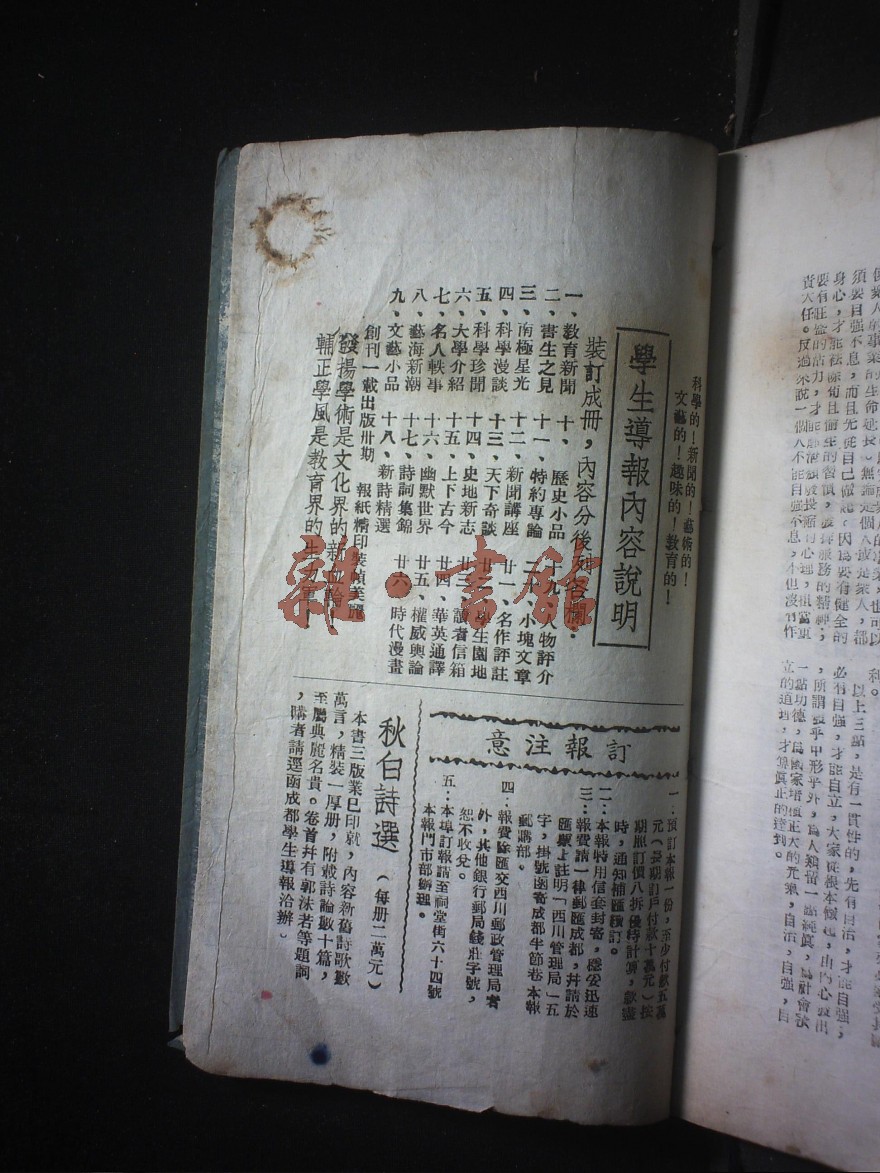 科學的！新聞的！藝術的！
文藝的！趣味的！教育的！
學生導報內容說明
裝訂成冊，內容分後列各欄：
一、教育新聞 十、歷史小品 十九、人物評介
二、書生之見 十一、特約專論 二十、小塊文章
三、南極星光 十二、新聞講座 廿一、名作評註
四、科學漫談 十三、天下奇談 廿二、學生園地
五、科學珍聞 十四、史地新志 廿三、讀者信箱
六、大學介紹 十五、上下古今 廿四、華英通譯
七、名人軼事 十六、幽默世界 廿五、權威輿論
八、藝海新潮 十七、詩詞集錦 廿六、時代漫畫
九、文藝小品 十八、新詩精選
創刊一載出版卅期 報紙精印裝幀美麗
發揚學術是文化界的新血輪！
輔正學風是教育界的生力軍
訂報注意
一：預訂本報一份，至少付款五萬
元（長期訂戶付款十萬元）按
期照訂價八折優待計算，款盡
時，通知補匯續訂。
二：本報特用信套封寄，穩妥迅速
三：報費請一律郵匯成都，并請於
匯票上註明「西川管理局」五
字，掛號函寄成都半節巷本報
郵購部。
四：報費除匯交西川郵政管理局者
外，其他銀行郵局錢莊字號，
恕不收兌。
五：本埠訂報請至祠堂街六十四號
本報門市部辦理。
秋白詩選（每冊二萬元）
本書三版業已印就，內容新舊詩歌數
萬言，精裝一厚冊，附載詩論數十篇，
至屬典麗名貴。卷首并有郭沫若等題詞
，購者請逕函成都學生導報洽辦。
須要自強不息，而且先從自己做起，因為要有健全的
身心，才能祛除苟且偷生的習慣，發揮服務的精神；
責大任。反過來說一個人不能自強不息，不但沒有作
利。
以上三點，是有一貫性的，先有自治，才能自強；
必有自強，才能自立，大家從根本做起，由內心發出
，所謂誠乎中形乎外，為人類留一點純真，為社會談
一點功德，為國家培植正大的元氣，自治，自強，自
立的道理，才算真正的達到。
雜·書館